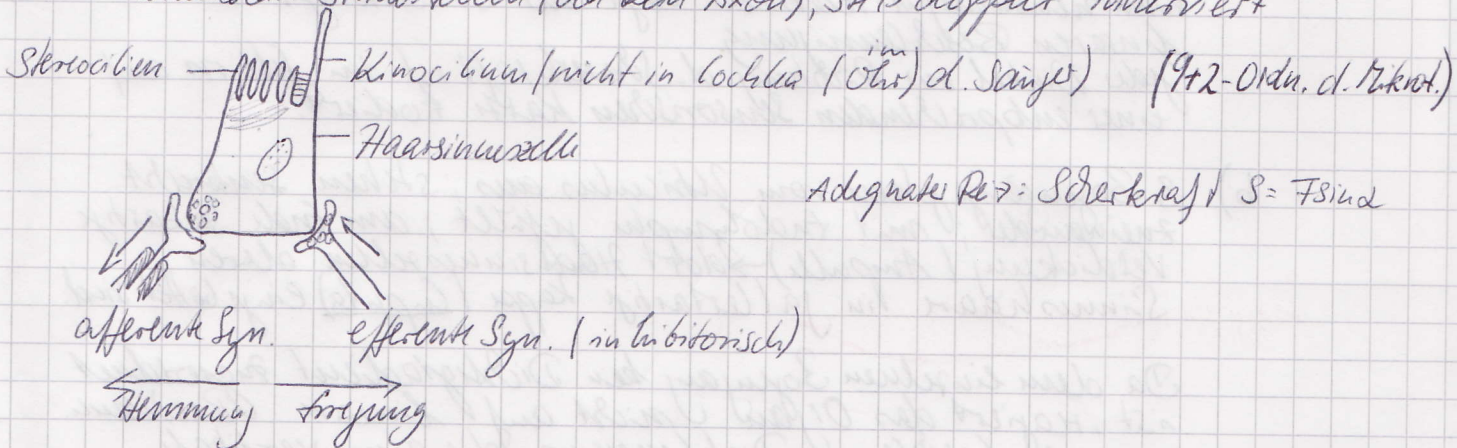 Sinneszellen (mit dem Axon), sind doppelt innerviert
Stereocilien
Kinocilium (nicht in Cochlea (im Ohr) d. Säuger) (9+2-Ordn. d. Mikrot.)
Haarsinneszelle
Adequater Reiz: Scherkraft S = F sin α
afferente Syn. efferente Syn. (inhibitorisch)
Hemmung Erregung